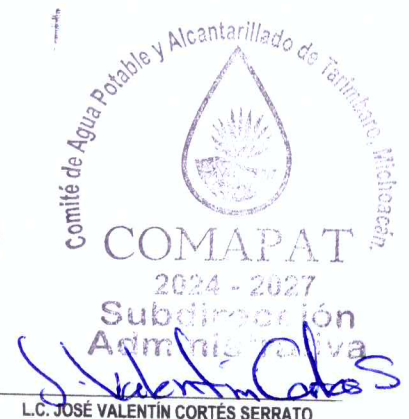 Comité de Agua Potable y Alcantarillado de Tarímbaro, Michoacán.
COMAPAT
2024 - 2027
Subdirección
Administrativa
J. Valentín Cortés S
L.C. JOSÉ VALENTÍN CORTÉS SERRATO